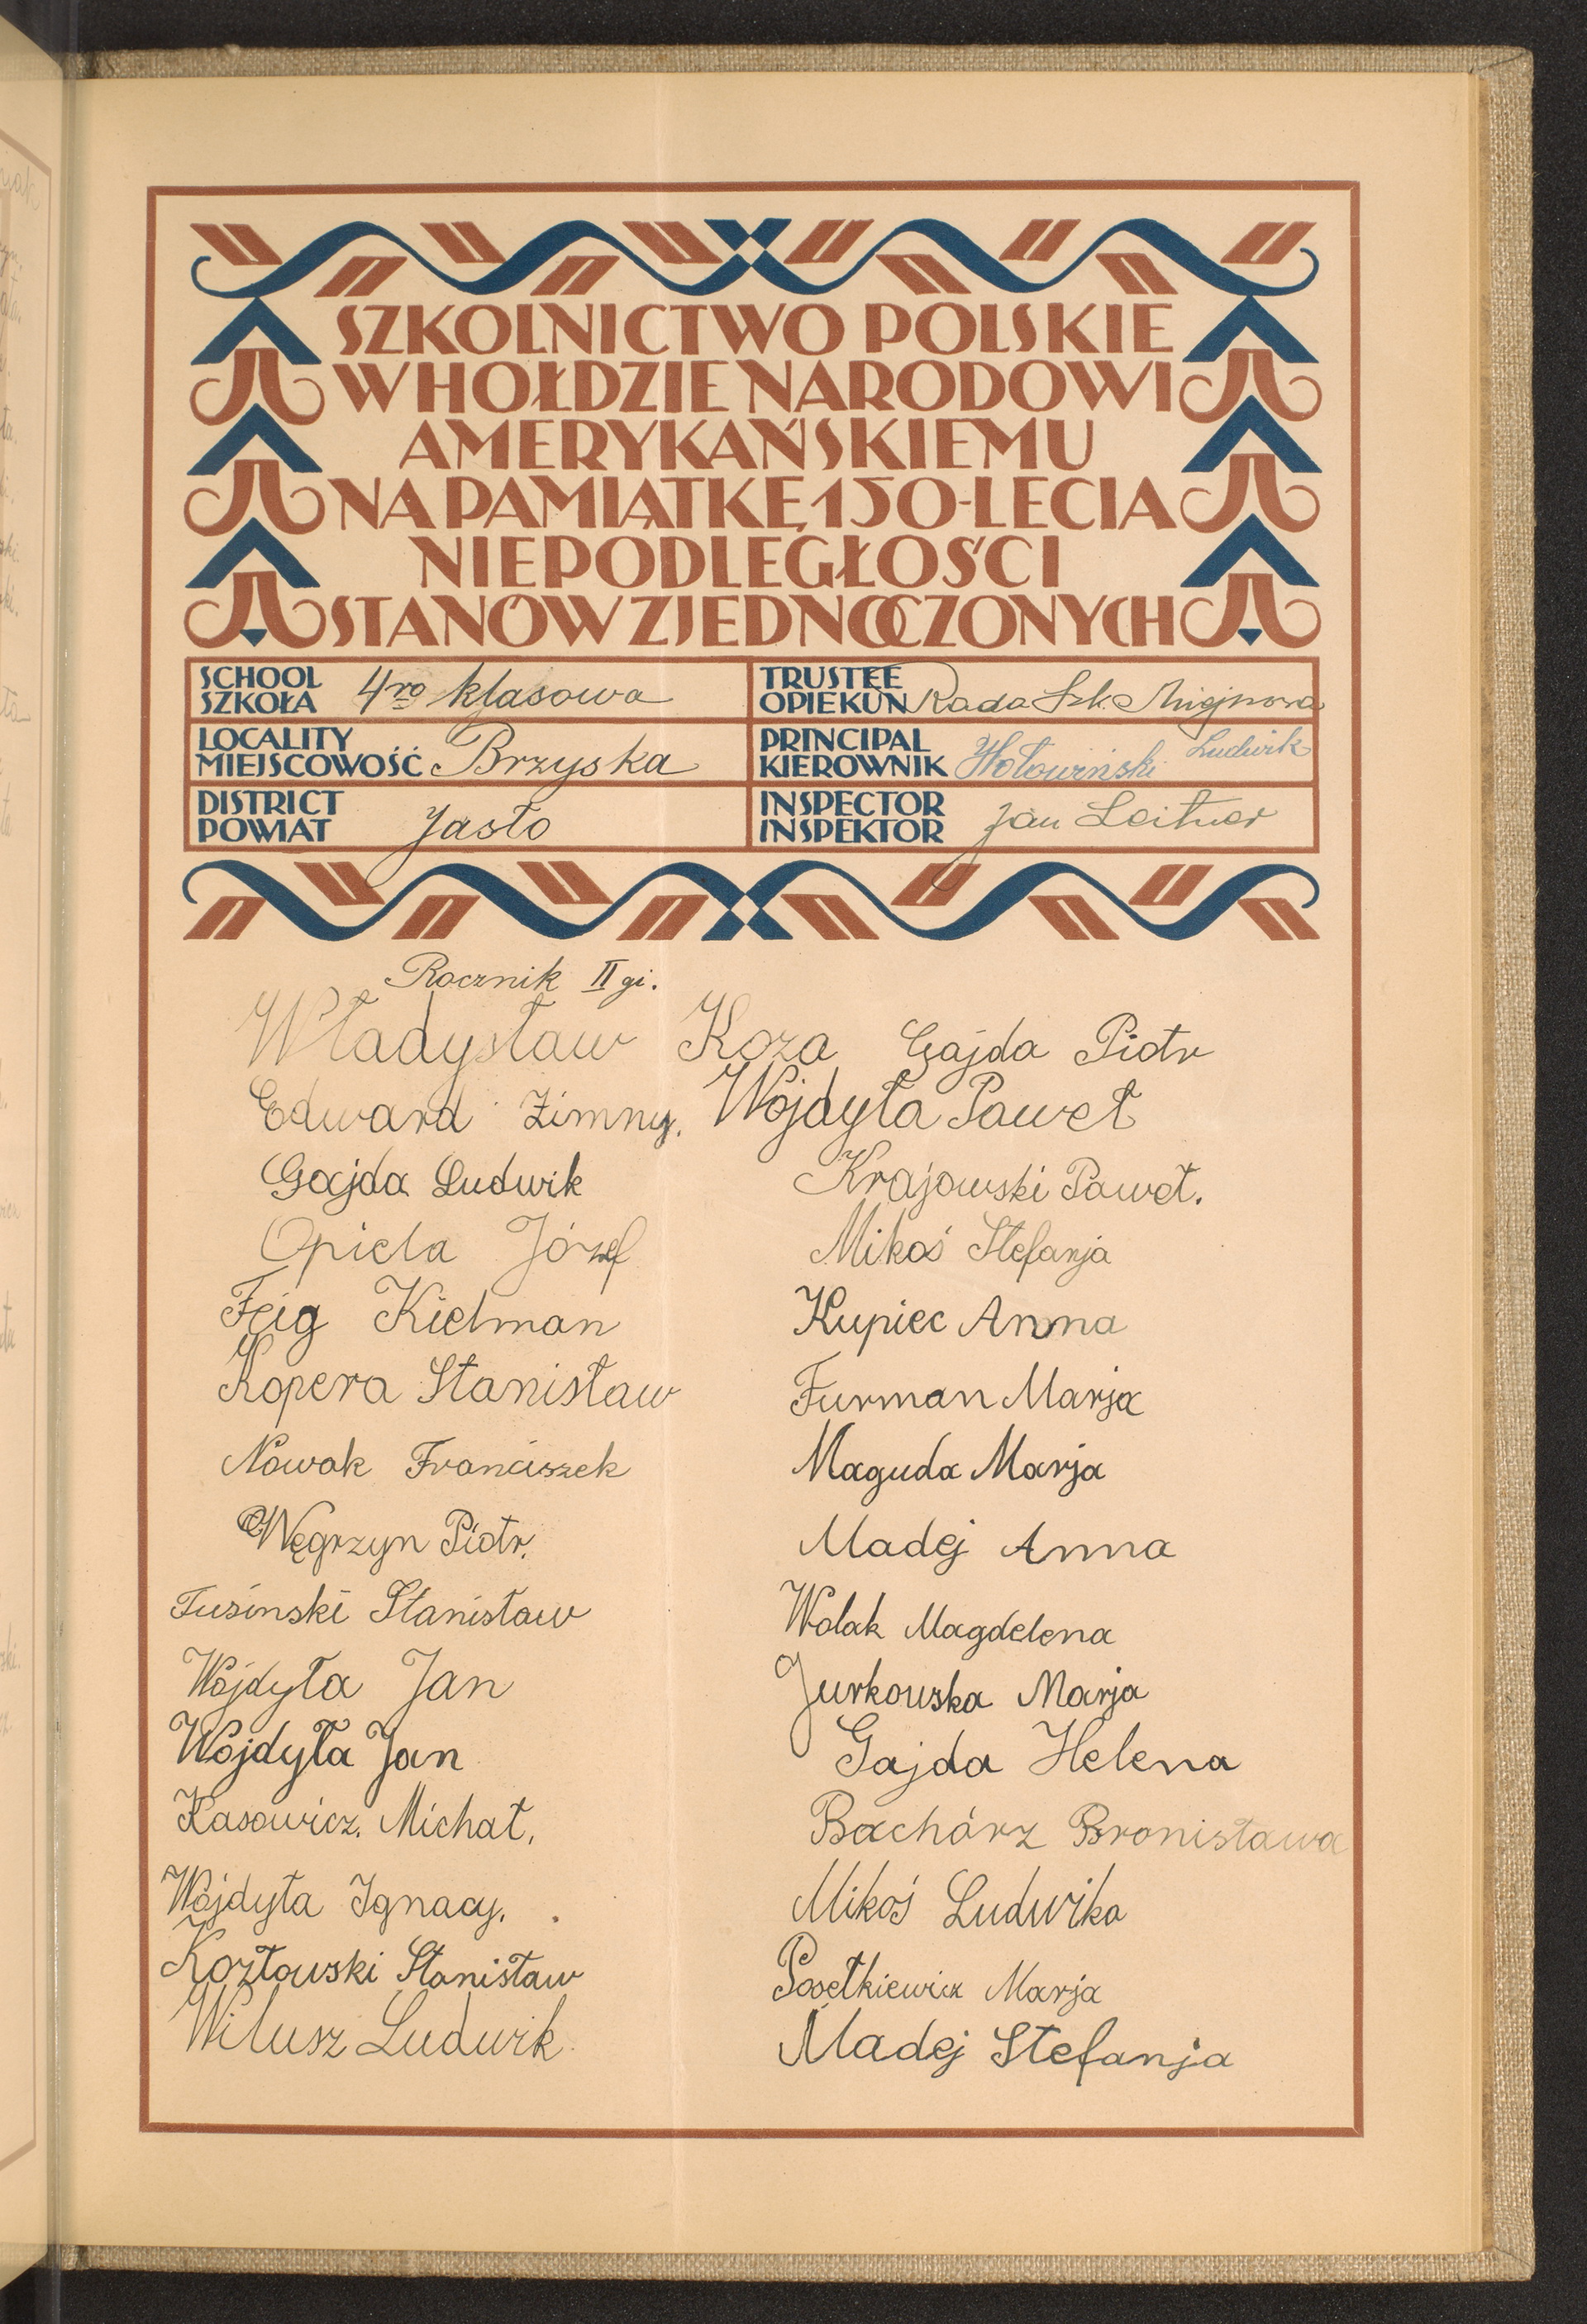 SZKOLNICTWO POLSKIE
W HOŁDZIE NARODOWI
AMERYKAŃSKIEMU
NA PAMIĄTKĘ 150-LECIA
NIEPODLEGŁOŚCI
STANÓW ZJEDNOCZONYCH
SCHOOL
SZKOŁA 4ro klasowa
TRUSTEE
OPIEKUN Rada Szk. Miejscowa
LOCALITY
MIEJSCOWOŚĆ Brzyska
PRINCIPAL
KIEROWNIK Hołowiński Ludwik
DISTRICT
POWIAT Jasło
INSPECTOR
INSPEKTOR Jan Leitner
Rocznik II gi.
Władysław Koza
Edward Zimny.
Gajda Ludwik
Opiela Józef
Feig Kielman
Kopera Stanisław
Nowak Franciszek
Węgrzyn Piotr.
Tusinski Stanisław
Wojdyła Jan
Wojdyła Jan
Kasowicz. Michał.
Wojdyła Ignacy.
Kozłowski Stanisław
Wilusz Ludwik
Gajda Piotr
Wojdyła Paweł
Krajowski Paweł.
Mikoś Stefanja
Kupiec Anna
Furman Marja
Maguda Marja
Madej Anna
Wolak Magdelena
Jurkowska Marja
Gajda Helena
Bachórz Bronisława
Mikoś Ludwika
Marja
Madej Stefanja